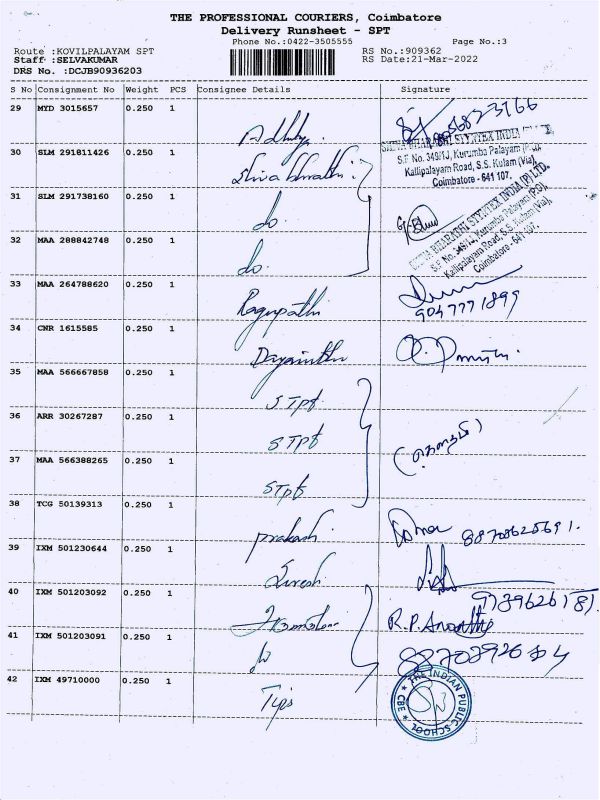 THE PROFESSIONAL COURIERS, Coimbatore
Delivery Runsheet - SPT
Phone No.:0422-3505555 Page No.:3
Route :KOVILPALAYAM SPT RS No.:909362
Staff :SELVAKUMAR RS Date:21-Mar-2022
DRS No. :DCJB90936203
S No Consignment No Weight PCS Consignee Details Signature
29 MYD 3015657 0.250 1
30 SLM 291811426 0.250 1 Shiva bharathi
SHIVA BHARATHI SYNTEX INDIA
S.F. No. 349/1J, Kurumba Palayam
Kallipalayam Road, S.S. Kulam (Via),
Coimbatore - 641 107.
31 SLM 291738160 0.250 1 do.
SHIVA BHARATHI SYNTEX INDIA (P) LTD.
S.F. No. 349/1J, Kurumba Palayam (P.O),
Kallipalayam Road, S.S. Kulam (Via),
Coimbatore - 641 107.
32 MAA 288842748 0.250 1 do.
33 MAA 264788620 0.250 1 Ragupathi
9047771899
34 CNR 1615585 0.250 1
35 MAA 566667858 0.250 1 STPf.
36 ARR 30267287 0.250 1 STPf
37 MAA 566388265 0.250 1 STPf
38 TCG 50139313 0.250 1 prakash
88708625691.
39 IXM 501230644 0.250 1 Suresh
40 IXM 501203092 0.250 1
R.P. Ananthi
41 IXM 501203091 0.250 1
42 IXM 49710000 0.250 1 Tips
THE INDIAN PUBLIC SCHOOL
CBE